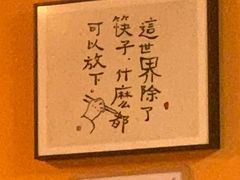 這世界除了
筷子，什么都
可以放下